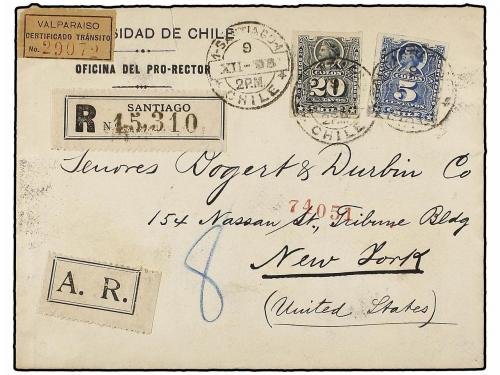 VALPARAISO
CERTIFICADO TRÁNSITO
No. 29072
SIDAD DE CHILE
OFICINA DEL PRO-RECTOR
SANTIAGO
9
XII-98
2PM
CHILE
20
COLON
5
CHILE
SANTIAGO
R N 15,310
Senores Bogert & Durbin Co
74051
154 Nassau St, Tribune Bldg
New York
(United States)
8
A. R.